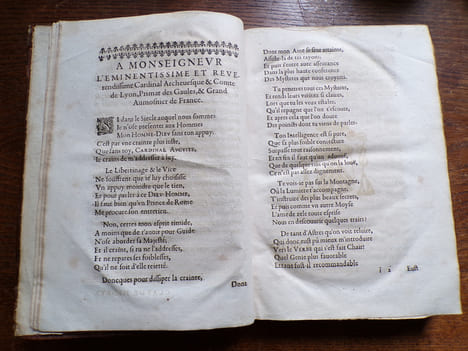 A MONSEIGNEVR
L'EMINENTISSIME ET REVE-
rendissime Cardinal Archeuesque & Comte
de Lyon, Primat des Gaules, & Grand
Aumosnier de France.
SI dans le Siecle auquel nous sommes
Ie n'ose presenter aux Hommes
Mon HOMME-DIEV sans ton appuy.
C'est par vne crainte plus iuste,
Que sans toy, CARDINAL AVGVSTE,
Ie crains de m'addresser à luy.
Le Libertinage & le Vice
Ne souffrent que ie luy choisisse
Vn appuy moindre que le tien,
Et pour parler à ce DIEV-HOMME,
Il faut bien qu'vn Prince de Rome
Me procure son entretien.
Non, certes mon esprit timide,
A moins que de t'auoir pour Guide
N'ose aborder sa Majesté,
Et il craint, si tu ne l'addresses,
Et ne repares ses foiblesses,
Qu'il ne soit d'elle reietté.
Doncques pour dissiper la crainte,
Dont
Dont mon Ame se sent atteinte,
de tes rayons;
Et puis s'entre auec asseurance
Dans la plus haute connoissance
Des Mysteres que nous croyons.
Tu penetres tous ces Mysteres,
Et rends leurs veritez si claires,
Lors que tu les veux estaler,
Qu'il repugne que l'on t'escoute,
Et apres cela que l'on doute
Des poincts dont tu viens de parler.
Ton Intelligence est si pure,
Que de fort loin elle
Surpasse tout raisonnement,
Et en fin il faut qu'on aduoue,
Que de quelque sens qu'on la loue,
Ce n'est pas assez dignement.
Te voit-je pas sur la Montagne,
Où la Lumiere t'accompagne,
T'instruire des plus beaux secrets,
Et puis comme vn autre Moyse
L'ame de zele toute esprise
Nous en descouurir quelques traits?
De tant d'Astres qu'on voit reluire,
Qui donc eust pû mieux m'introduire
Vers le VERBE qui s'est fait Chair?
Quel Genie plus fauorable
Et sans fast si recommandable
ã 2 Eust